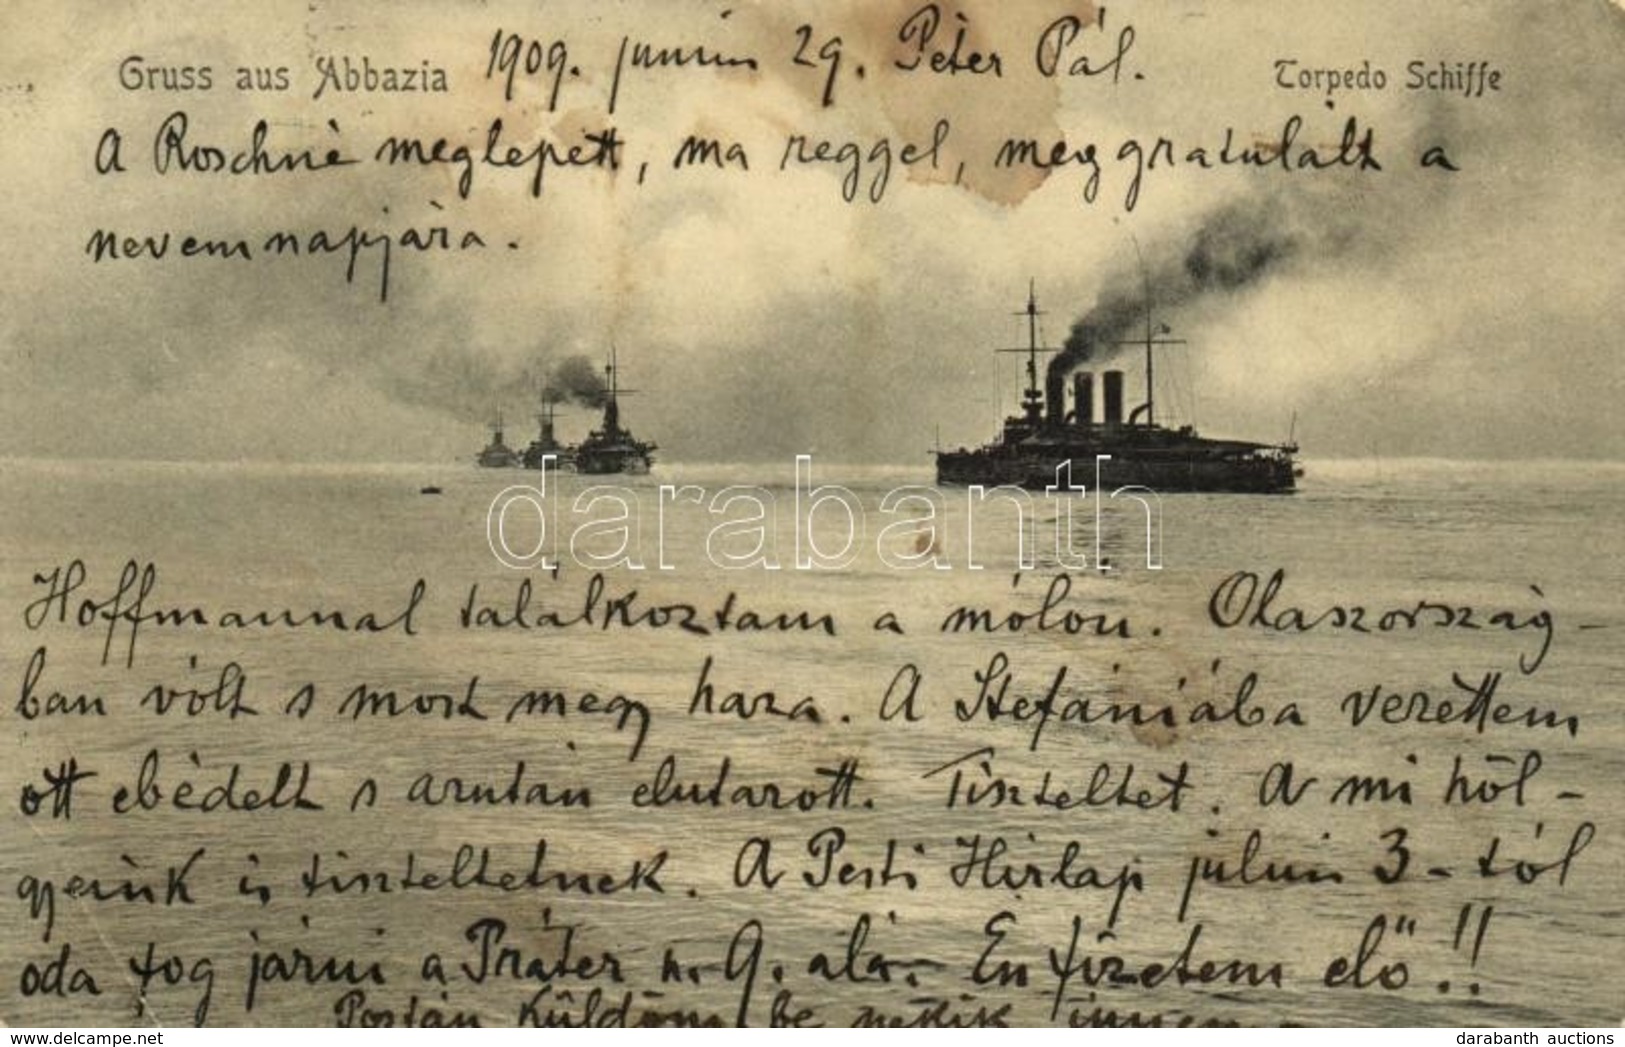 Gruss aus Abbazia 1909. junius 29. Péter Pál. Torpedo Schiffe
A Roschné meglepett, ma reggel, meggratulált a
nevem napjára.
darabanth
Hoffmannal találkoztam a mólón. Olaszország-
ban volt s most megy haza. A Stefániába vezettem
ott ebédelt s azután elutazott. Tiszteltet. A mi höl-
gyeink is tiszteltetnek. A Pesti Hirlap julius 3-tól
oda fog járni a Práter u. 9. alá. Én fizetem elő!!
Postán küldöm be nékik innen
darabanth auctions